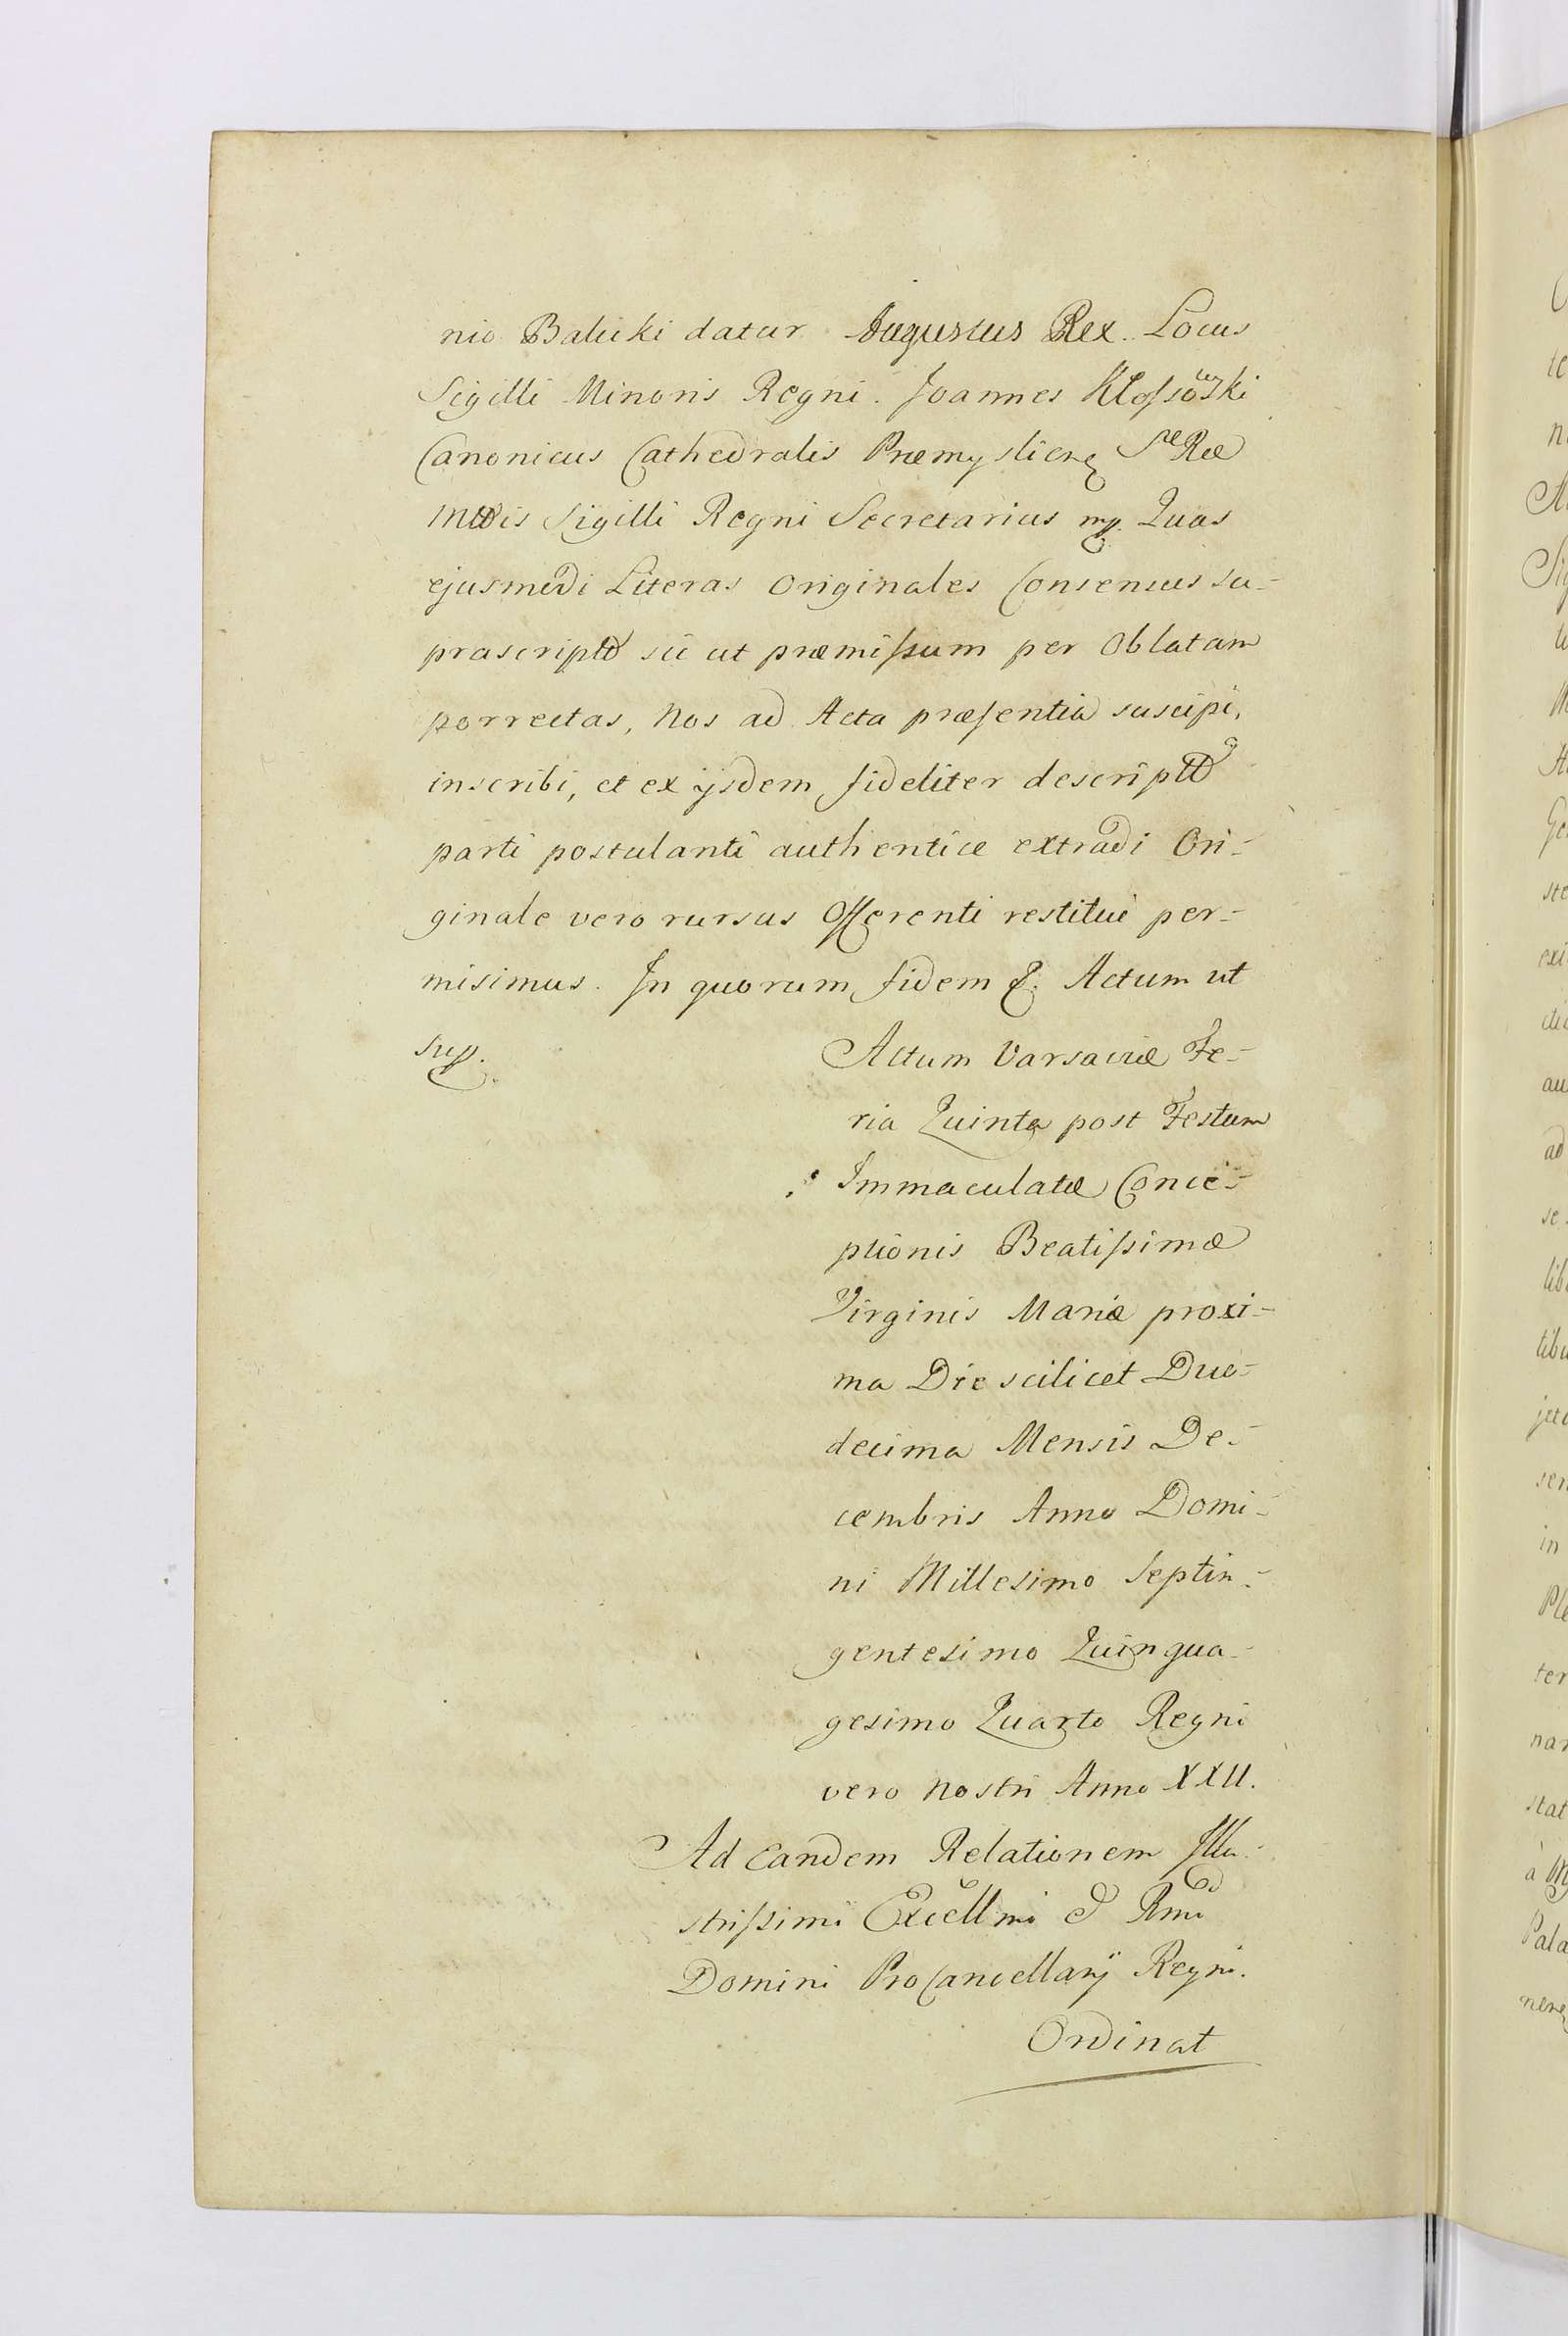 nio Balicki datur. Augustus Rex. Locus
Sigilli Minoris Regni. Joannes Klossowski
Canonicus Cathedralis Præmyslien Sæ Ræ
Mttis Sigilli Regni Secretarius mp. Quas
ejusmodi Literas Originales Consensus su-
prascriptt sic ut præmissum per Oblatam
porrectas, Nos ad Acta præsentia suscipi,
inscribi, et ex ijsdem fideliter descriptt
parti postulanti authentice extradi Ori-
ginale vero rursus Offerenti restitui per-
misimus. In quorum fidem &. Actum ut
sup.
Actum Varsaviæ Fe-
ria Quinta post Festum
Immaculatæ Conce-
ptionis Beatissimæ
Virginis Mariæ proxi-
ma Die scilicet Duo-
decima Mensis De-
cembris Anno Domi-
ni Millesimo Septin-
gentesimo Quinqua-
gesimo Quarto Regni
vero Nostri Anno XXII.
Ad Eandem Relationem Illu-
strissimi Excellmi & Rmi
Domini ProCancellarij Regni.
Ordinat